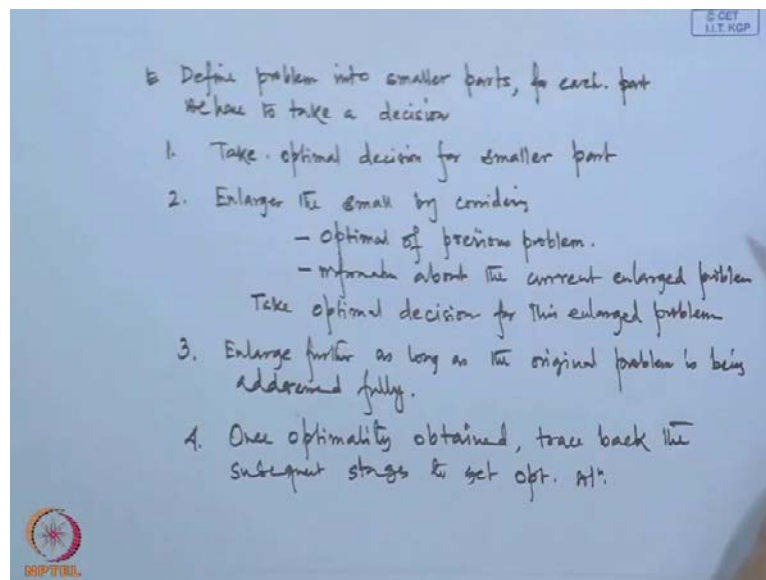 © CET
I.I.T. KGP
Define problem into smaller parts, for each. part
we have to take a decision
1. Take optimal decision for smaller part
2. Enlarger the small by considering
– optimal of previous problem.
– information about the current enlarged problem
Take optimal decision for this enlarged problem
3. Enlarge further as long as the original problem is being
addressed fully.
4. Once optimality obtained, trace back the
subsequent stages to get opt. sol<sup>n</sup>.
NPTEL